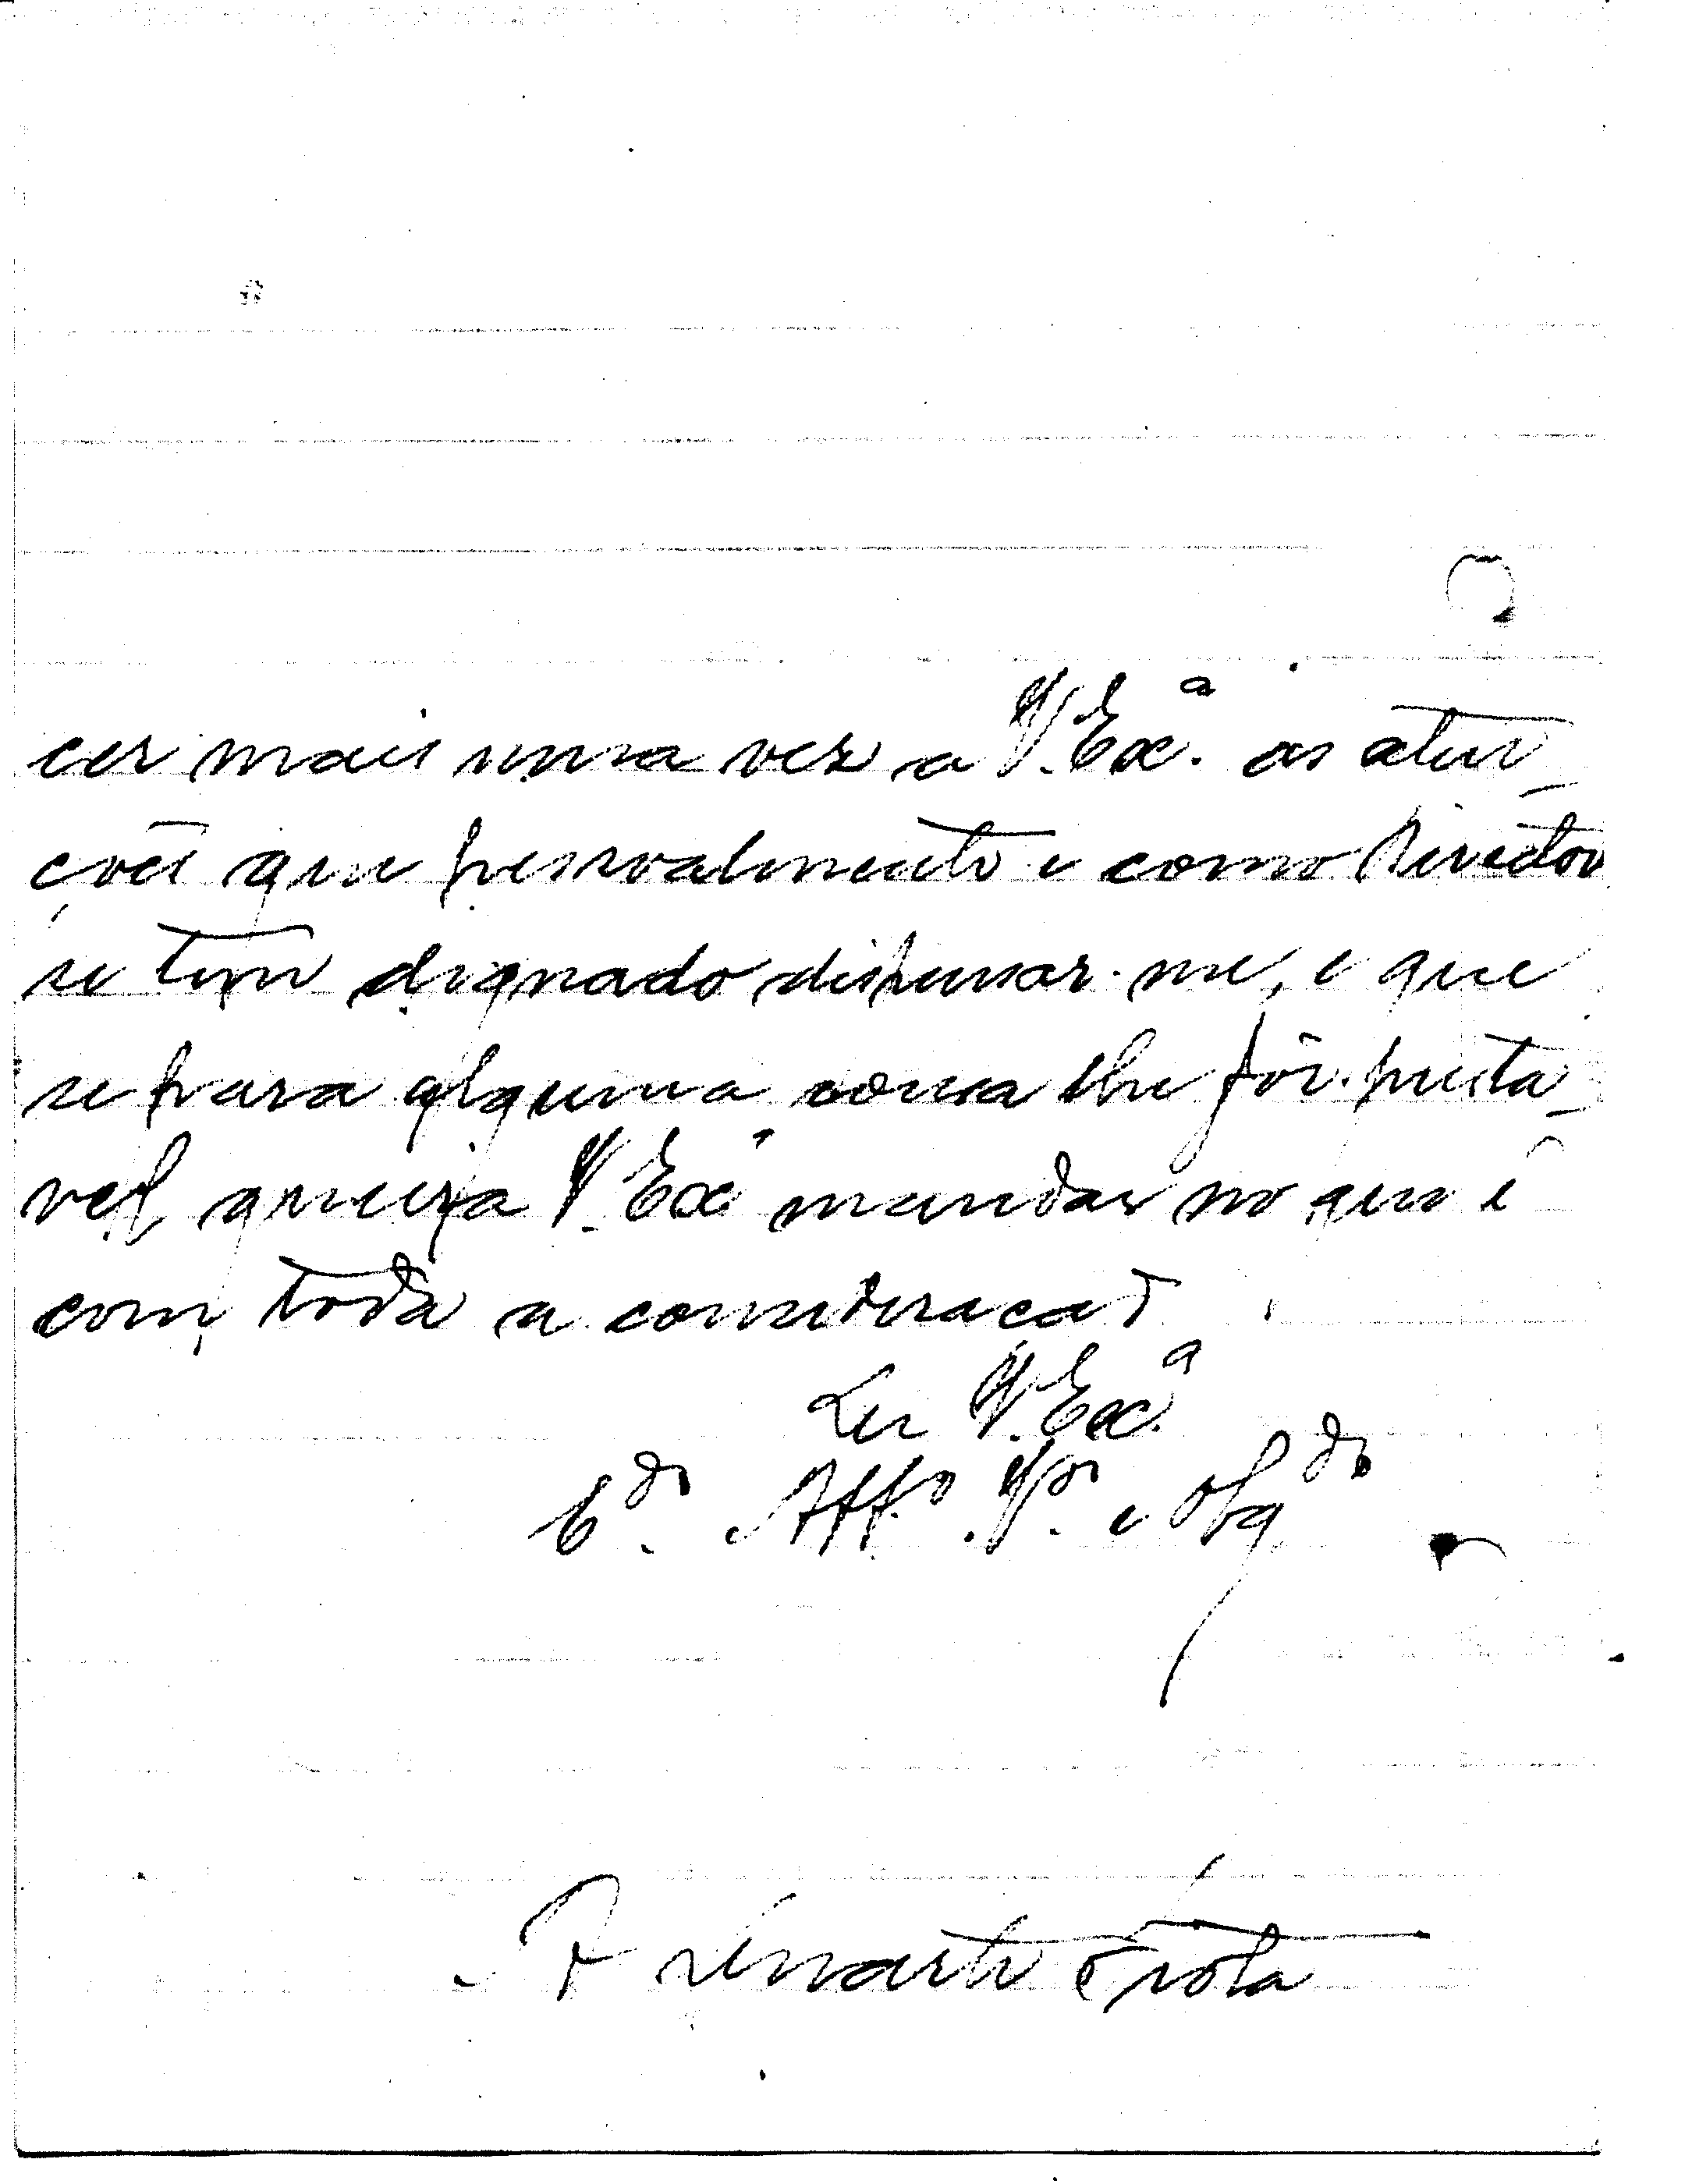 cer mais uma vez a V. Exª. as aten-
ções que pessoalmente e como Director
se tem dignado dispensar-me, e que
se para alguma cousa lhe fôr presta-
vel queira V. Exª mandar no que é
com toda a consideração
De V. Exª.
Cdo. Atto. Vor. e Obgdo
Duarte Frota